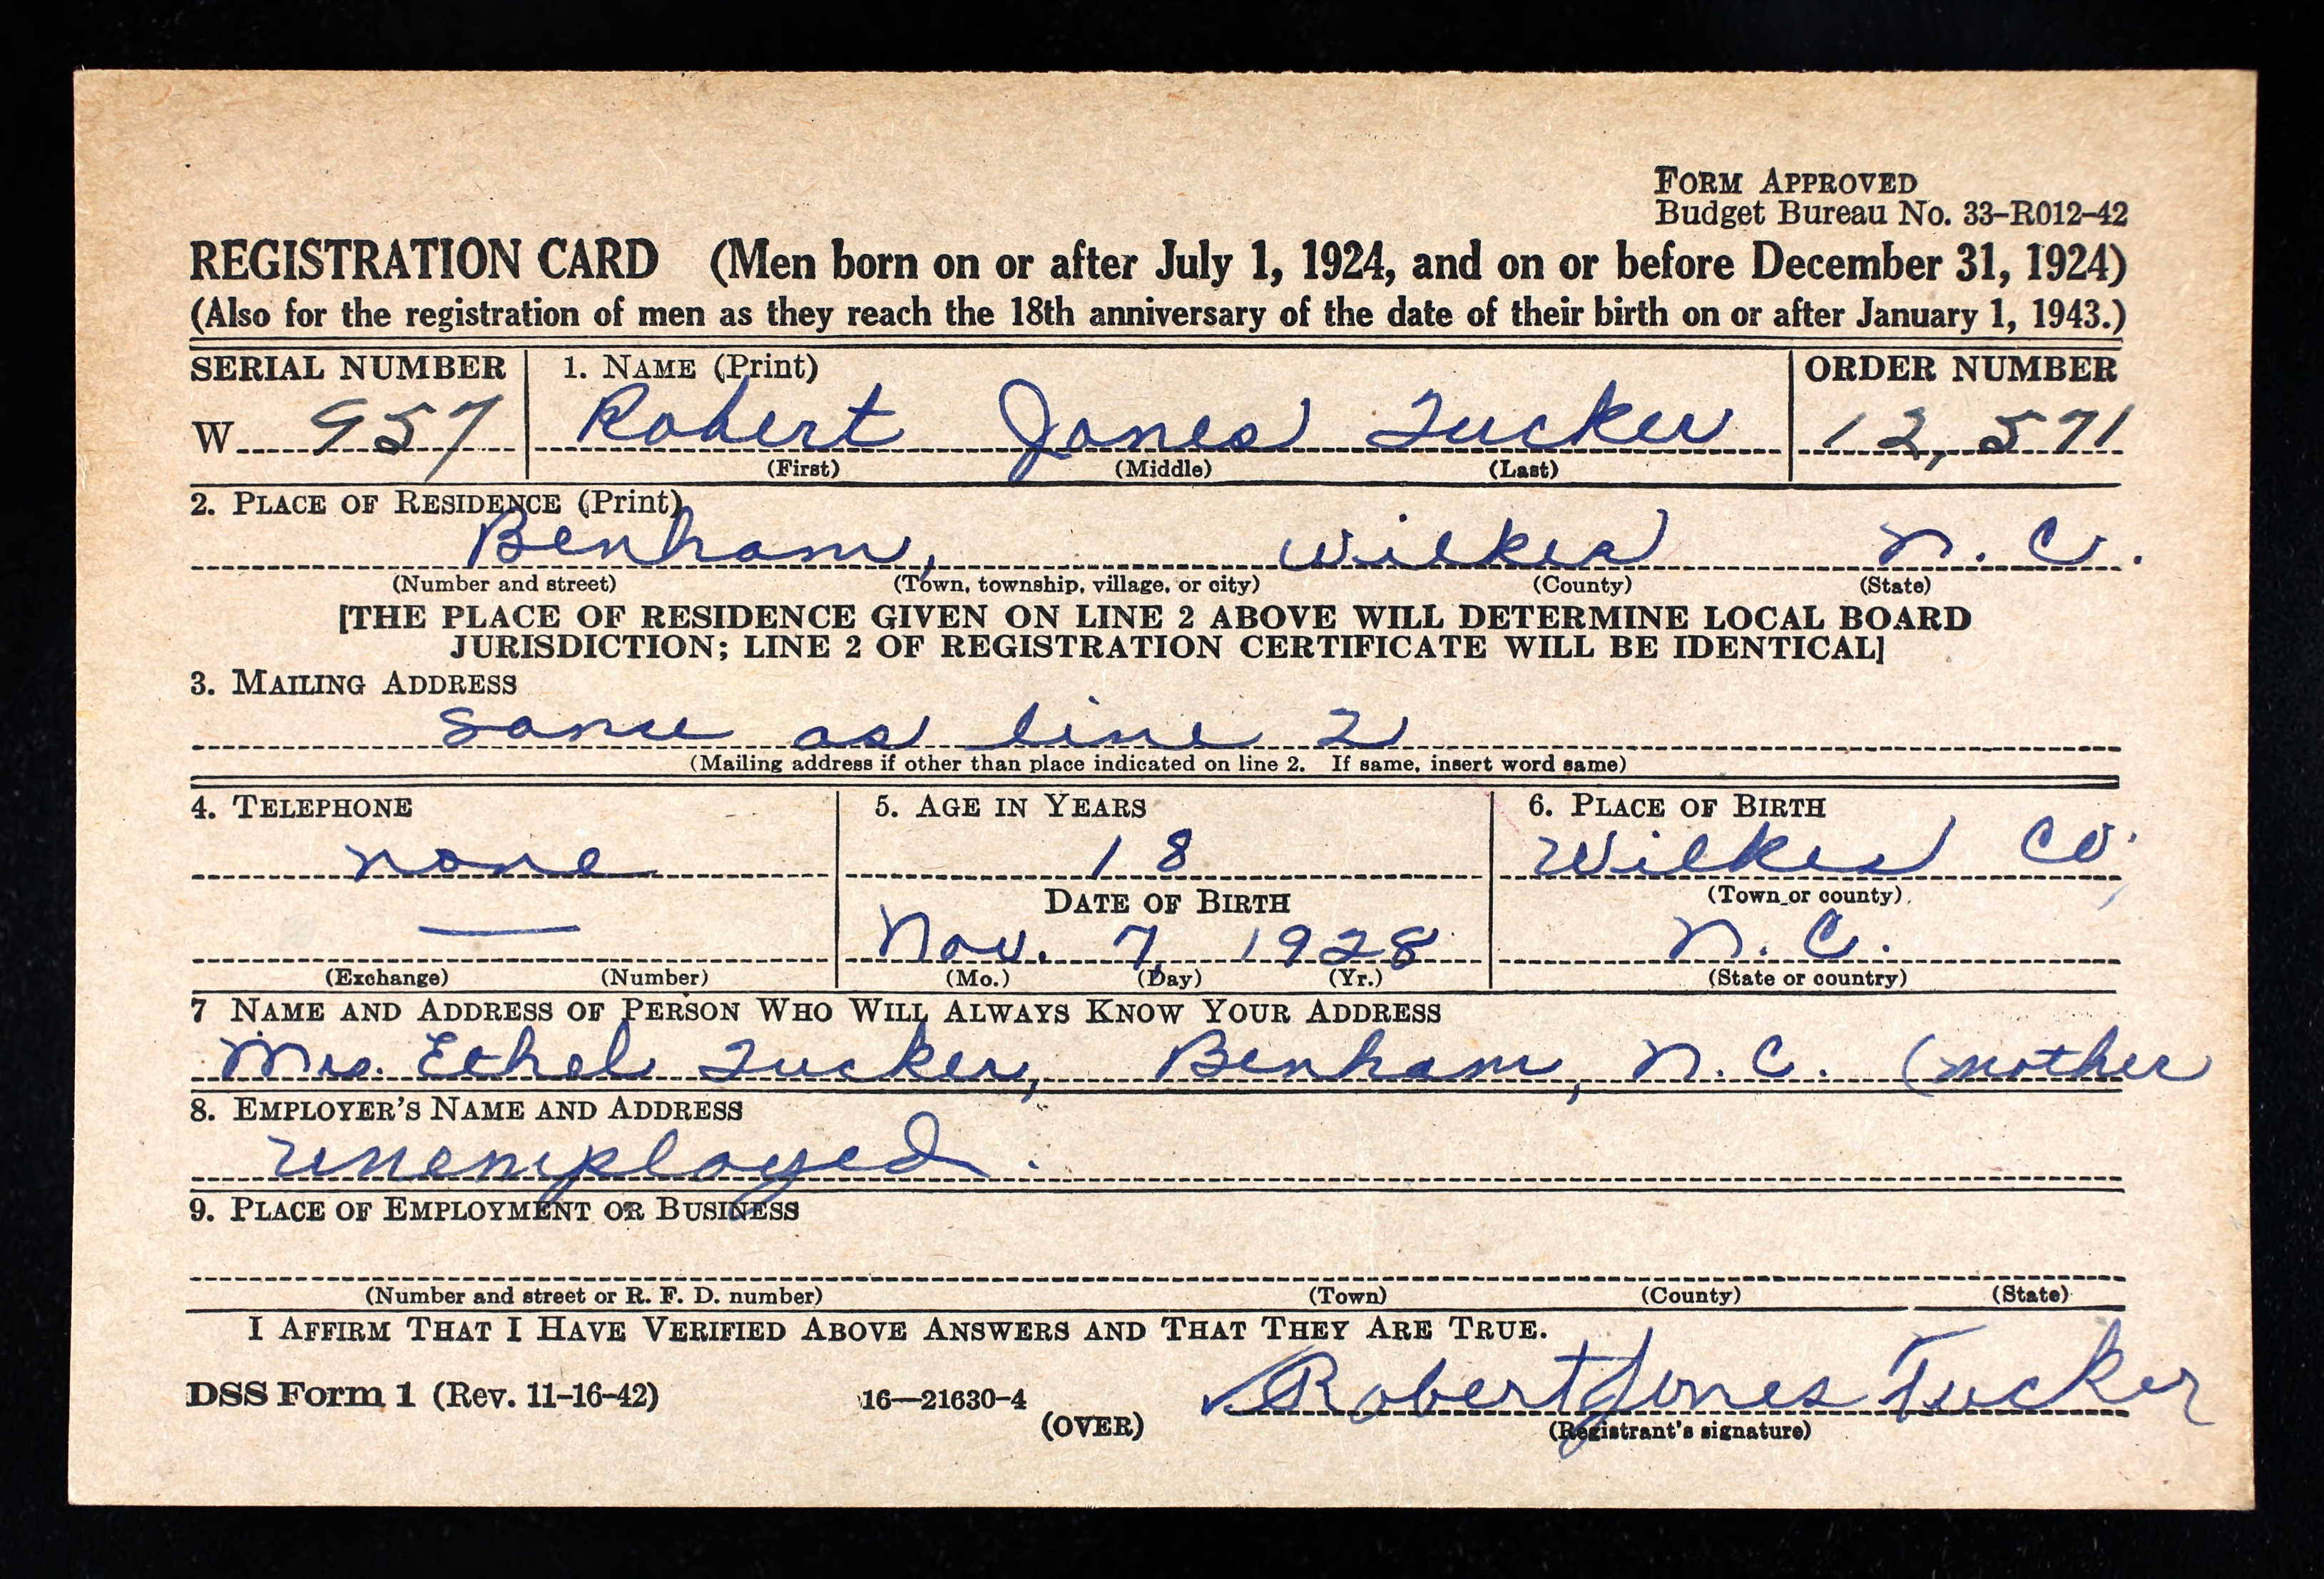 FORM APPROVED
Budget Bureau No. 33-R012-42
REGISTRATION CARD (Men born on or after July 1, 1924, and on or before December 31, 1924)
(Also for the registration of men as they reach the 18th anniversary of the date of their birth on or after January 1, 1943.)
SERIAL NUMBER 1. NAME (Print) ORDER NUMBER
W 957 Robert Jones Tucker 12,571
(First) (Middle) (Last)
2. PLACE OF RESIDENCE (Print)
Benham, Wilkes N. C.
(Number and street) (Town, township, village, or city) (County) (State)
[THE PLACE OF RESIDENCE GIVEN ON LINE 2 ABOVE WILL DETERMINE LOCAL BOARD
JURISDICTION; LINE 2 OF REGISTRATION CERTIFICATE WILL BE IDENTICAL]
3. MAILING ADDRESS
Same as line 2
(Mailing address if other than place indicated on line 2. If same, insert word same)
4. TELEPHONE 5. AGE IN YEARS 6. PLACE OF BIRTH
none 18 Wilkes Co.
DATE OF BIRTH (Town or county)
Nov. 7, 1928 N. C.
(Exchange) (Number) (Mo.) (Day) (Yr.) (State or country)
7 NAME AND ADDRESS OF PERSON WHO WILL ALWAYS KNOW YOUR ADDRESS
Mrs. Ethel Tucker, Benham, N. C. (mother
8. EMPLOYER'S NAME AND ADDRESS
Unemployed.
9. PLACE OF EMPLOYMENT OR BUSINESS
(Number and street or R. F. D. number) (Town) (County) (State)
I AFFIRM THAT I HAVE VERIFIED ABOVE ANSWERS AND THAT THEY ARE TRUE.
DSS Form 1 (Rev. 11-16-42) 16—21630-4 Robert Jones Tucker
(OVER) (Registrant's signature)